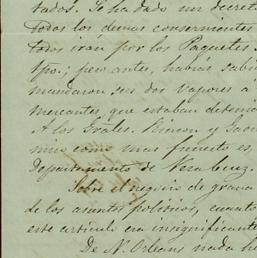 tados. Se ha dado un decreto
todos los demas concernientes
todos iran por los Paquetes
tpo.; pero antes, habrás sabi
mandaron, son dos vapores a
mercantes, que estaban deteni
A los Grales. Rincon y Gaon
mui como mas fuerte es
Departamento de Veracruz.
Sobre el negocio de grana
de los asuntos politicos, cuanto
este articulo era insignificante
De N. Orleans nada h